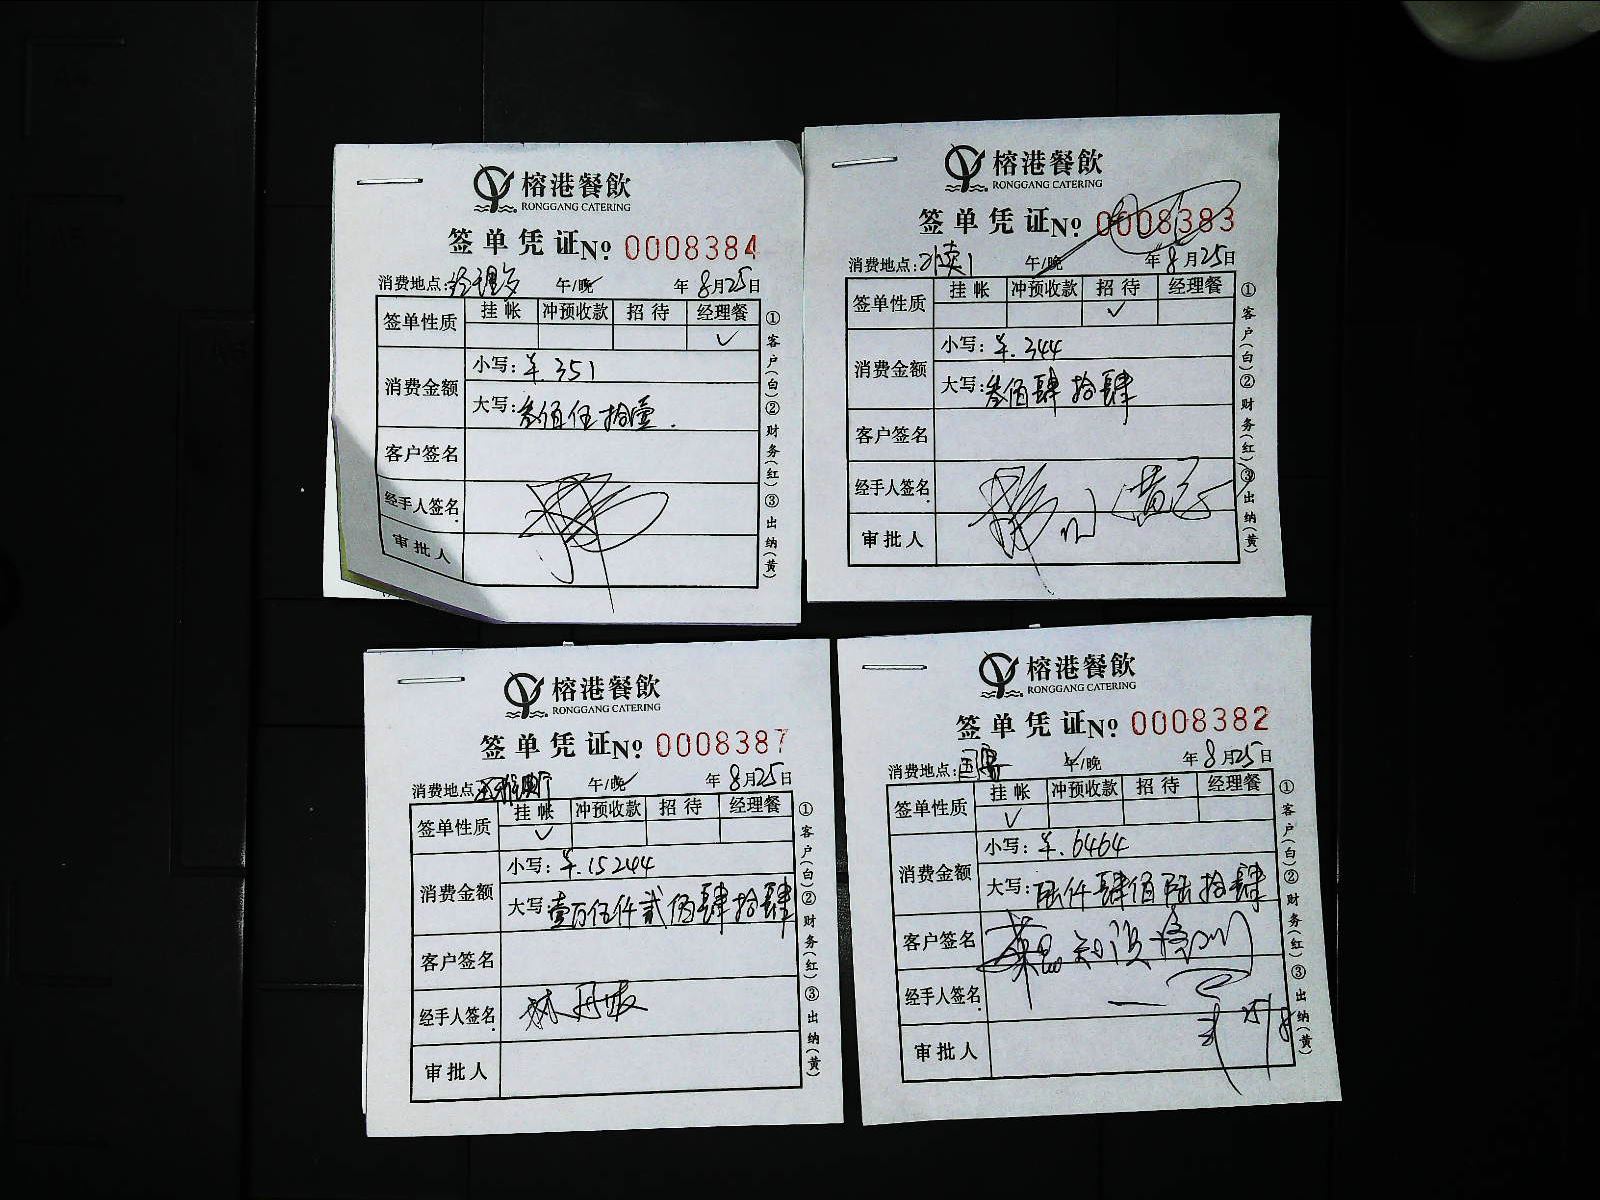 榕港餐飲
RONGGANG CATERING
签单凭证 № 0008384
消费地点: 午/晚 年8月25日
签单性质 挂帐 冲预收款 招待 经理餐
✓
消费金额
小写: ¥.351
大写: 叁佰伍拾壹.
客户签名
经手人签名
审批人
①客户(白)②财务(红)③出纳(黄)
榕港餐飲
RONGGANG CATERING
签单凭证 № 0008383
消费地点: 午/晚 年8月25日
签单性质 挂帐 冲预收款 招待 经理餐
✓
消费金额
小写: ¥.344
大写: 叁佰肆拾肆
客户签名
经手人签名
审批人
①客户(白)②财务(红)③出纳(黄)
榕港餐飲
RONGGANG CATERING
签单凭证 № 0008387
消费地点: 午/晚 年8月25日
签单性质 挂帐 冲预收款 招待 经理餐
✓
消费金额
小写: ¥.15244
大写: 壹万伍仟贰佰肆拾肆
客户签名
经手人签名
审批人
①客户(白)②财务(红)③出纳(黄)
榕港餐飲
RONGGANG CATERING
签单凭证 № 0008382
消费地点: 午/晚 年8月25日
签单性质 挂帐 冲预收款 招待 经理餐
✓
消费金额
小写: ¥.6464
大写: 陆仟肆佰陆拾肆
客户签名
经手人签名
审批人
①客户(白)②财务(红)③出纳(黄)